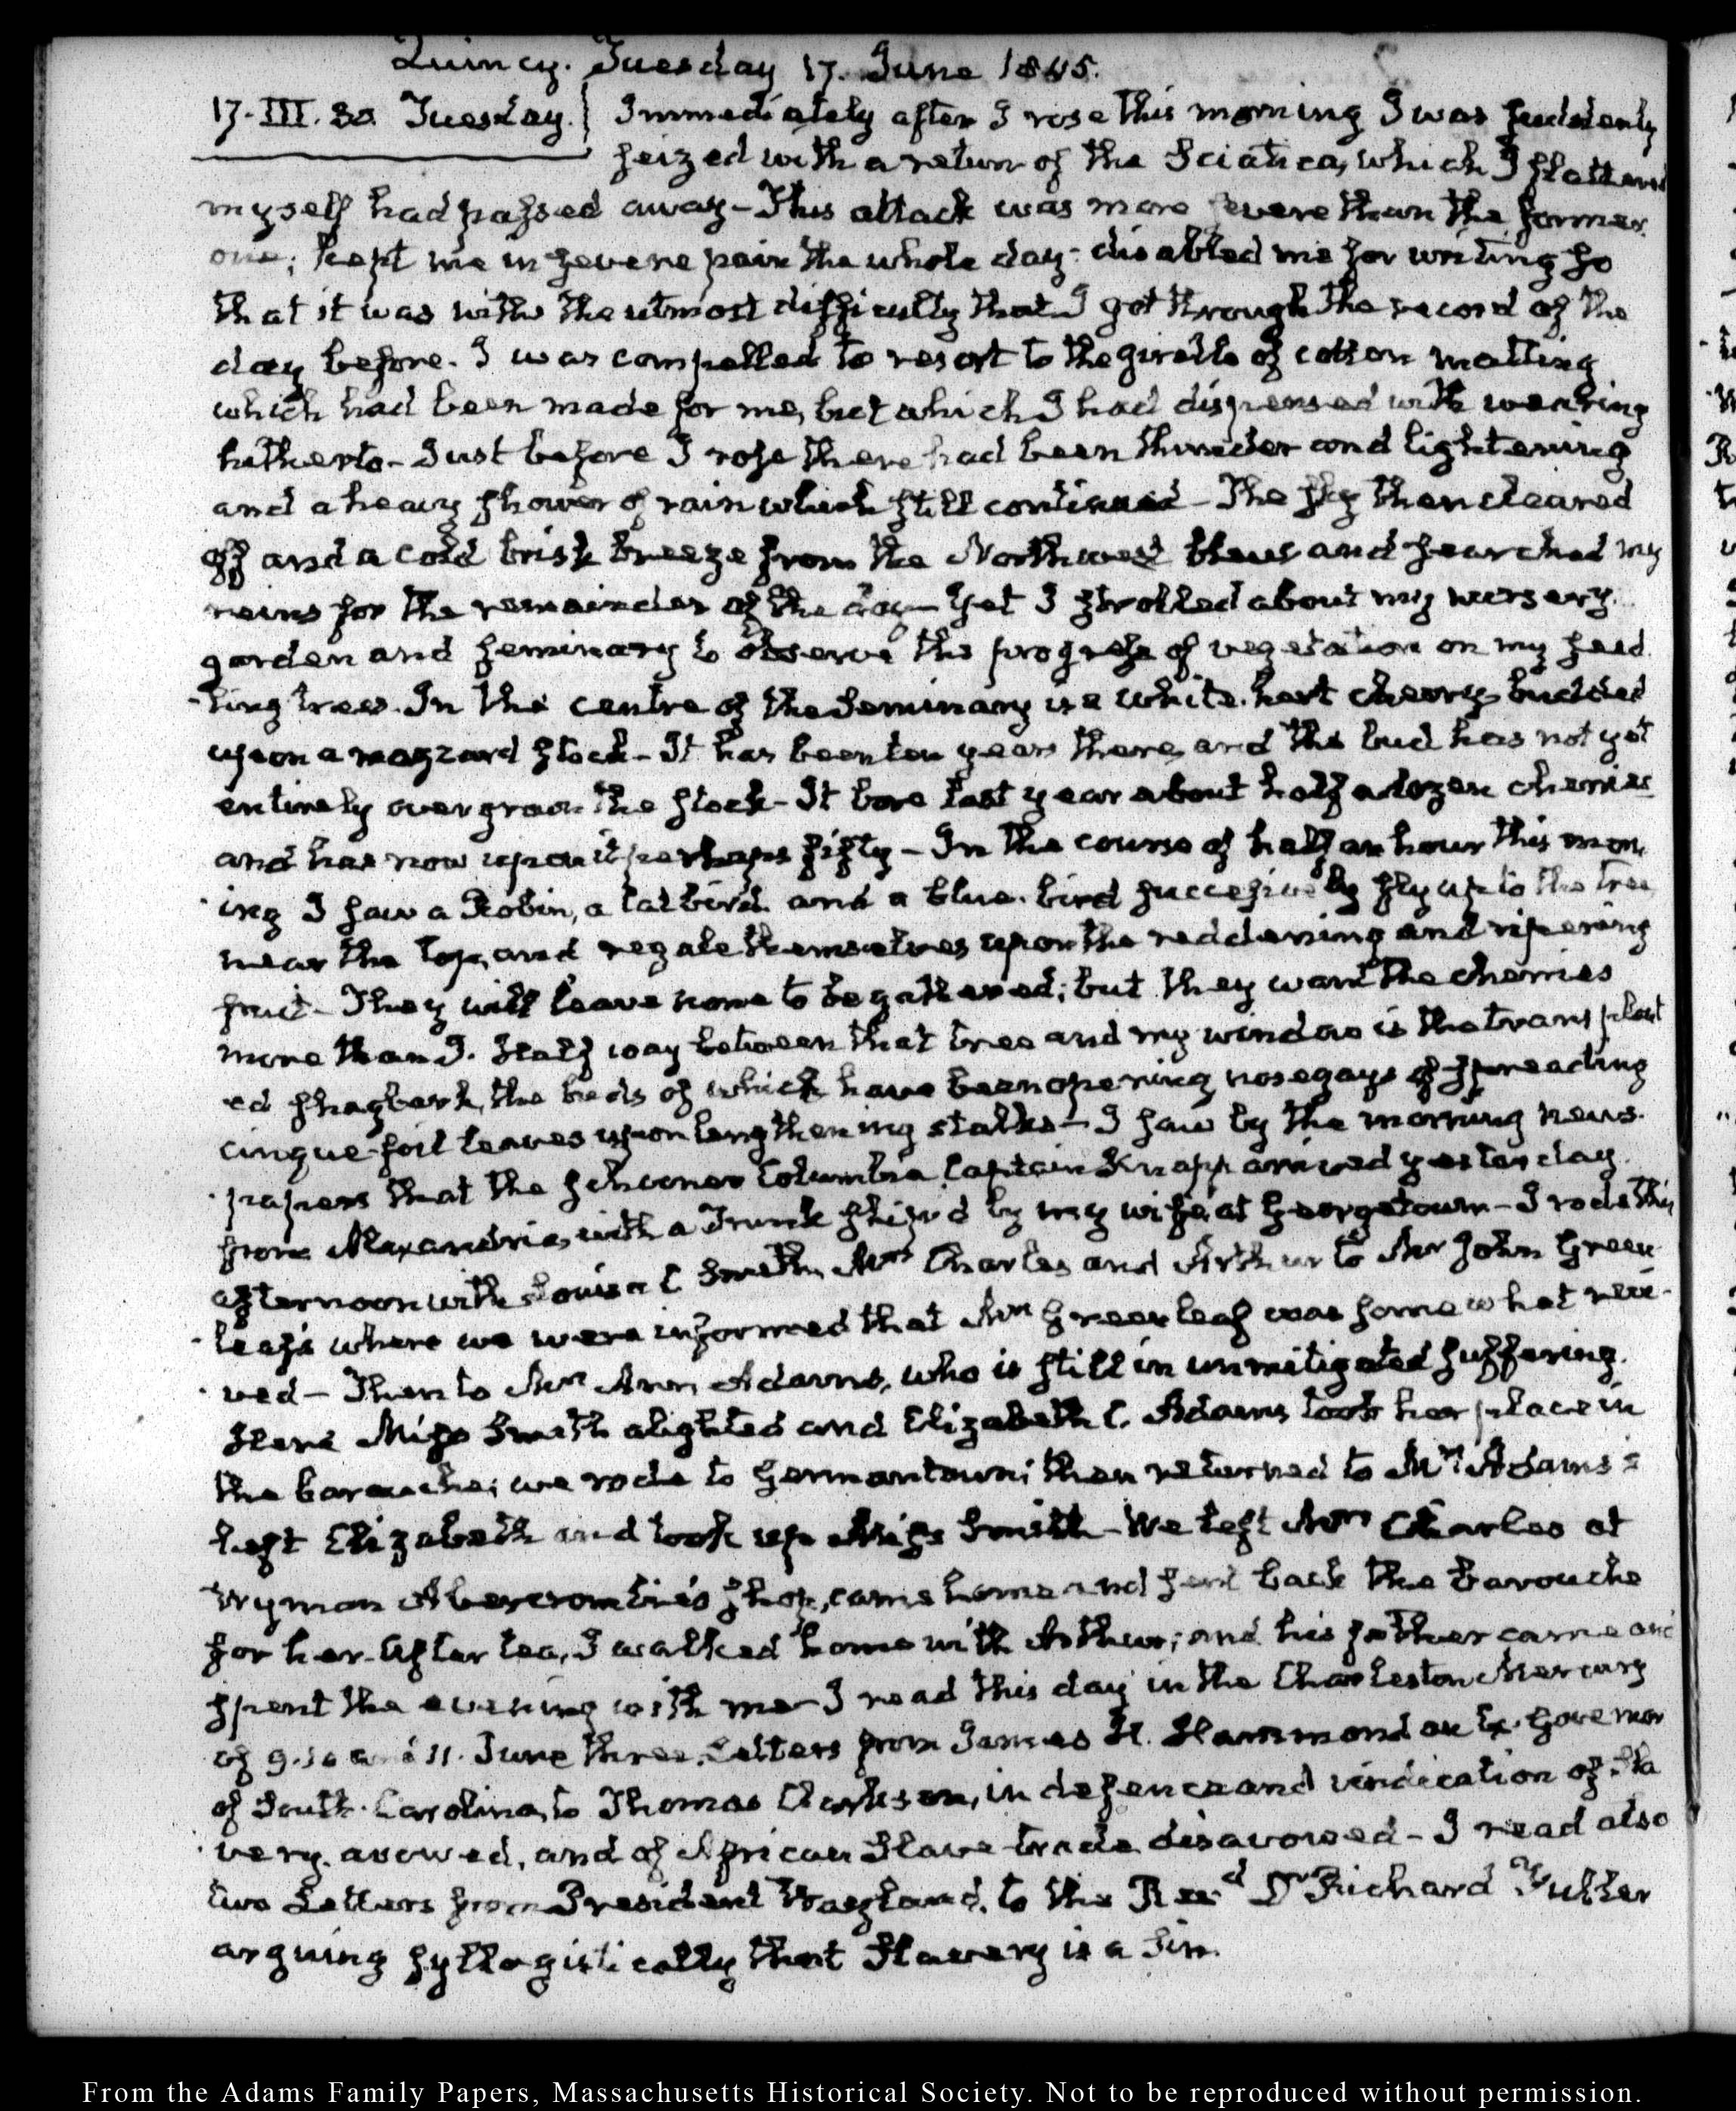 Quincy. Tuesday 17. June 1845.
17. III. 30. Tuesday. Immediately after I rose this morning I was suddenly
seized with a return of the Sciatica, which I flattered
myself had passed away – This attack was more severe than the former
one; kept me in severe pain the whole day – disabled me for writing so
that it was with the utmost difficulty that I got through the record of the
day before. I was compelled to resort to the girdle of cotton matting
which had been made for me, but which I had dispensed with wearing
hitherto – Just before I rose there had been thunder and lightening
and a heavy shower of rain which still continued – The sky then cleared
off and a cold brisk breeze from the Northwest blew and searched my
reins for the remainder of the day – Yet I strolled about my nursery
garden and seminary to observe the progress of vegetation on my seed
-ling trees. In the centre of the Seminary is a white-hart cherry budded
upon a mazzard stock – It has been ten years there, and the bud has not yet
entirely overgrown the stock – It bore last year about half a dozen cherries
and has now upon it perhaps fifty – In the course of half an hour this morn
-ing I saw a Robin, a Cat bird and a blue-bird successively fly up to the tree
near the top, and regale themselves upon the reddening and ripening
fruit – They will leave none to be gathered; but they want the cherries
more than I. Half way between that tree and my window is the transplant
ed shagbark, the buds of which have been opening nosegays of spreading
cinque-foil leaves upon lengthening stalks – I saw by the morning news-
-papers that the schooner Columbia, Captain Knapp arrived yesterday
from Alexandria, with a Trunk ship'd by my wife, at Georgetown – I rode this
afternoon with Louisa C Smith, Mrs Charles and Arthur to Mr John Green
-leaf's where we were informed that Mrs Greenleaf was somewhat revi-
-ved – Then to Mrs Ann Adams, who is still in unmitigated suffering.
Here Miss Smith alighted and Elizabeth C. Adams took her place in
the barouche; we rode to Germantown; then returned to Mrs Adams's
left Elizabeth and took up Miss Smith – We left Mrs Charles at
Wyman Abercrombie's shop, came home and sent back the barouche
for her. After tea, I walked home with Arthur; and his father came and
spent the evening with me – I read this day in the Charleston Mercury
of 9. 10 and 11. June three Letters from James H. Hammond an Ex-Governor
of South-Carolina, to Thomas Clarkson, in defence and vindication of Sla
-very avowed, and of African Slave-trade disavowed – I read also
two Letters from President Wayland, to the Revd Dr Richard Fuller
arguing syllogistically that Slavery is a Sin.
From the Adams Family Papers, Massachusetts Historical Society. Not to be reproduced without permission.